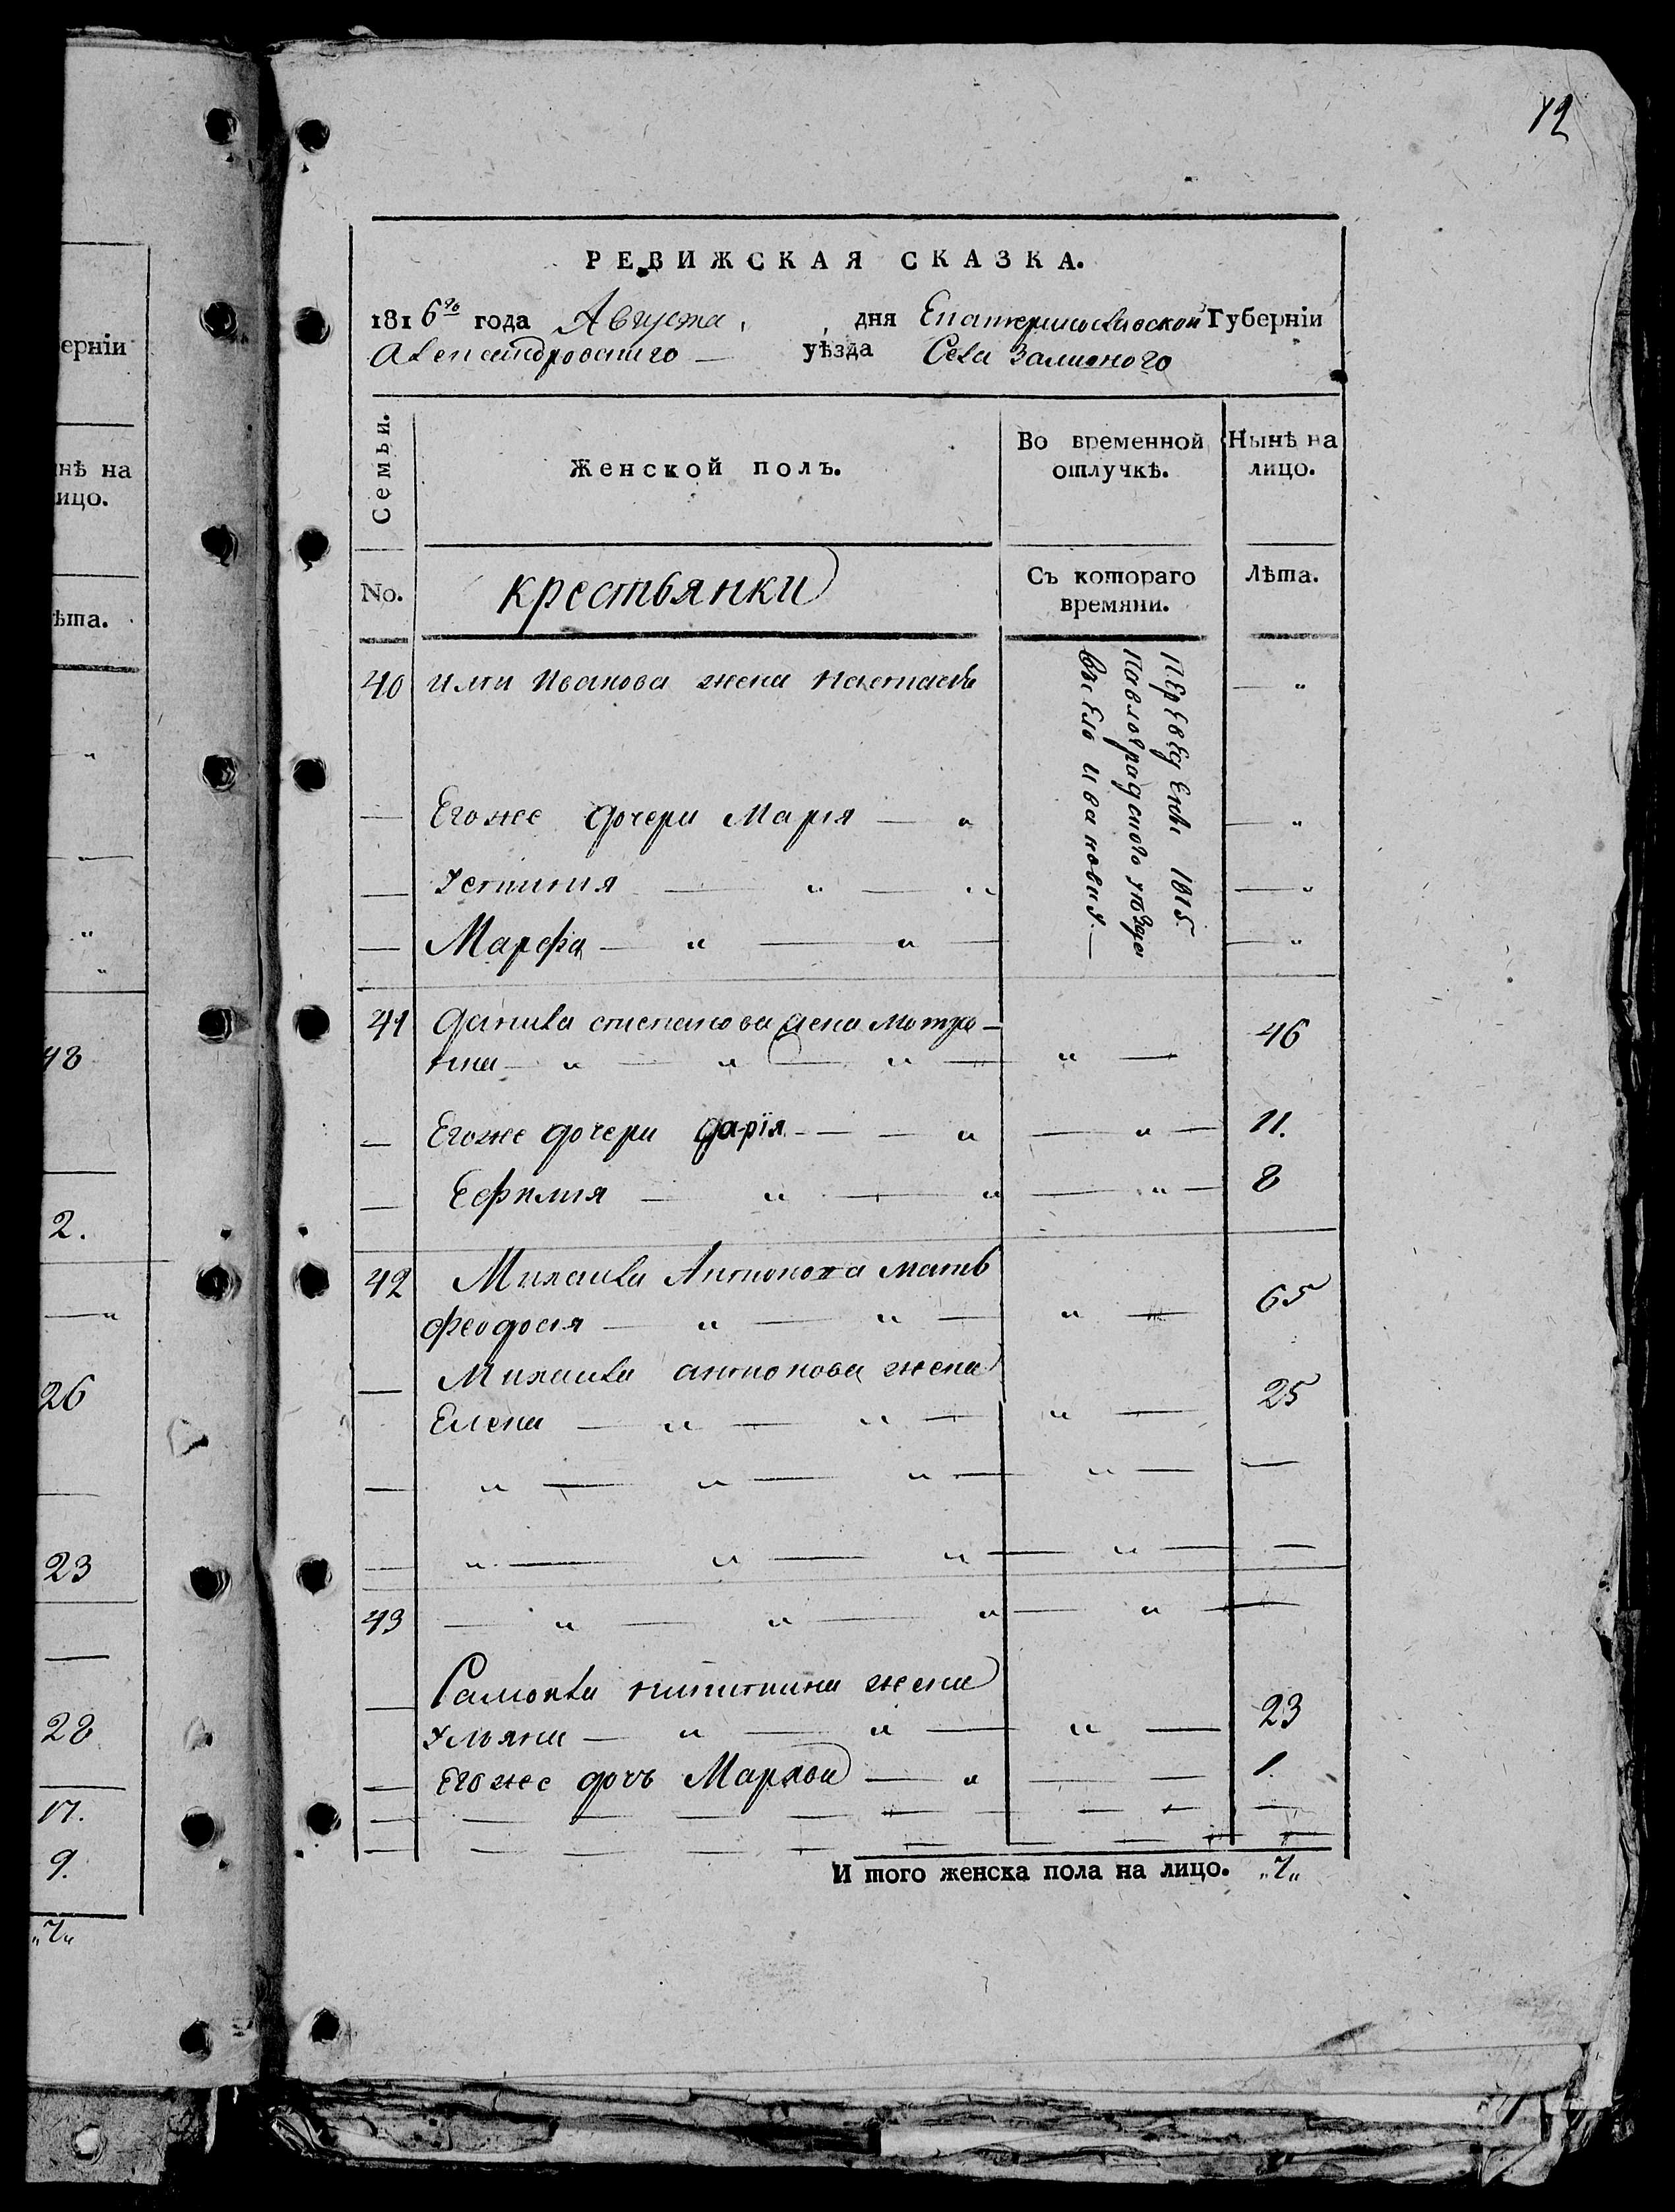 12
РЕВИЖСКАЯ СКАЗКА.
1816го года Августа дня Екатеринославской Губерніи
Александровского — уѣзда Села Заливного
ерніи
Семьи.
Женской полъ.
Во временной отлучкѣ.
Нынѣ на лицо.
нѣ на
ицо.
No.
крестьянки
Съ котораго времяни.
Лѣта.
ѣта.
40 Ивана жена Настасья — „
Переведены 1815.
Павлоградского уѣзда
въ село Ивановку. —
— Егоже дочери Марія — „ — „
— Устинія — „ — „ — „
— Марфа — „ — „ — — „
41 Данила степанова жена Мотро- 46
на — „ — „ — „ — „ —
— Егоже дочери дарія — — „ — „ — 11.
— Еефимія — „ — „ — „ — 8
42 Михаила Антонова мать 65
феодосія — „ — „ — „ —
— Михаила антонова жена 25
Елена — „ — „ — „ —
— „ — „ — „ — „ — —
— „ — „ — „ — „ — —
43 — „ — „ — „ — „ — —
— жена 23
Ульяна — „ — „ — „ —
— Егоже дочь Марфа — „ — — 1.
И того женска пола на лицо. „7„
48
2.
26
23
28
17.
9.
„7„